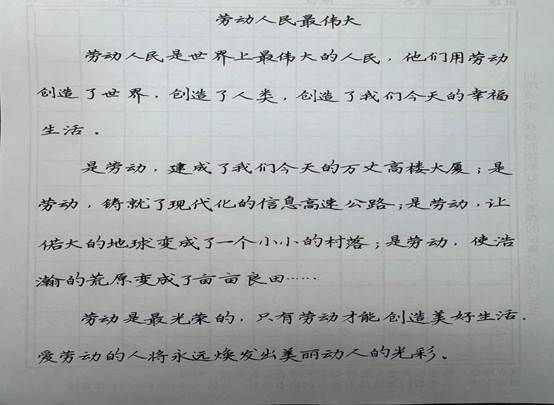 劳动人民最伟大
劳动人民是世界上最伟大的人民，他们用劳动
创造了世界，创造了人类，创造了我们今天的幸福
生活。
是劳动，建成了我们今天的万丈高楼大厦；是
劳动，铸就了现代化的信息高速公路；是劳动，让
偌大的地球变成了一个小小的村落；是劳动，使浩
瀚的荒原变成了亩亩良田……
劳动是最光荣的，只有劳动才能创造美好生活。
爱劳动的人将永远焕发出美丽动人的光彩。